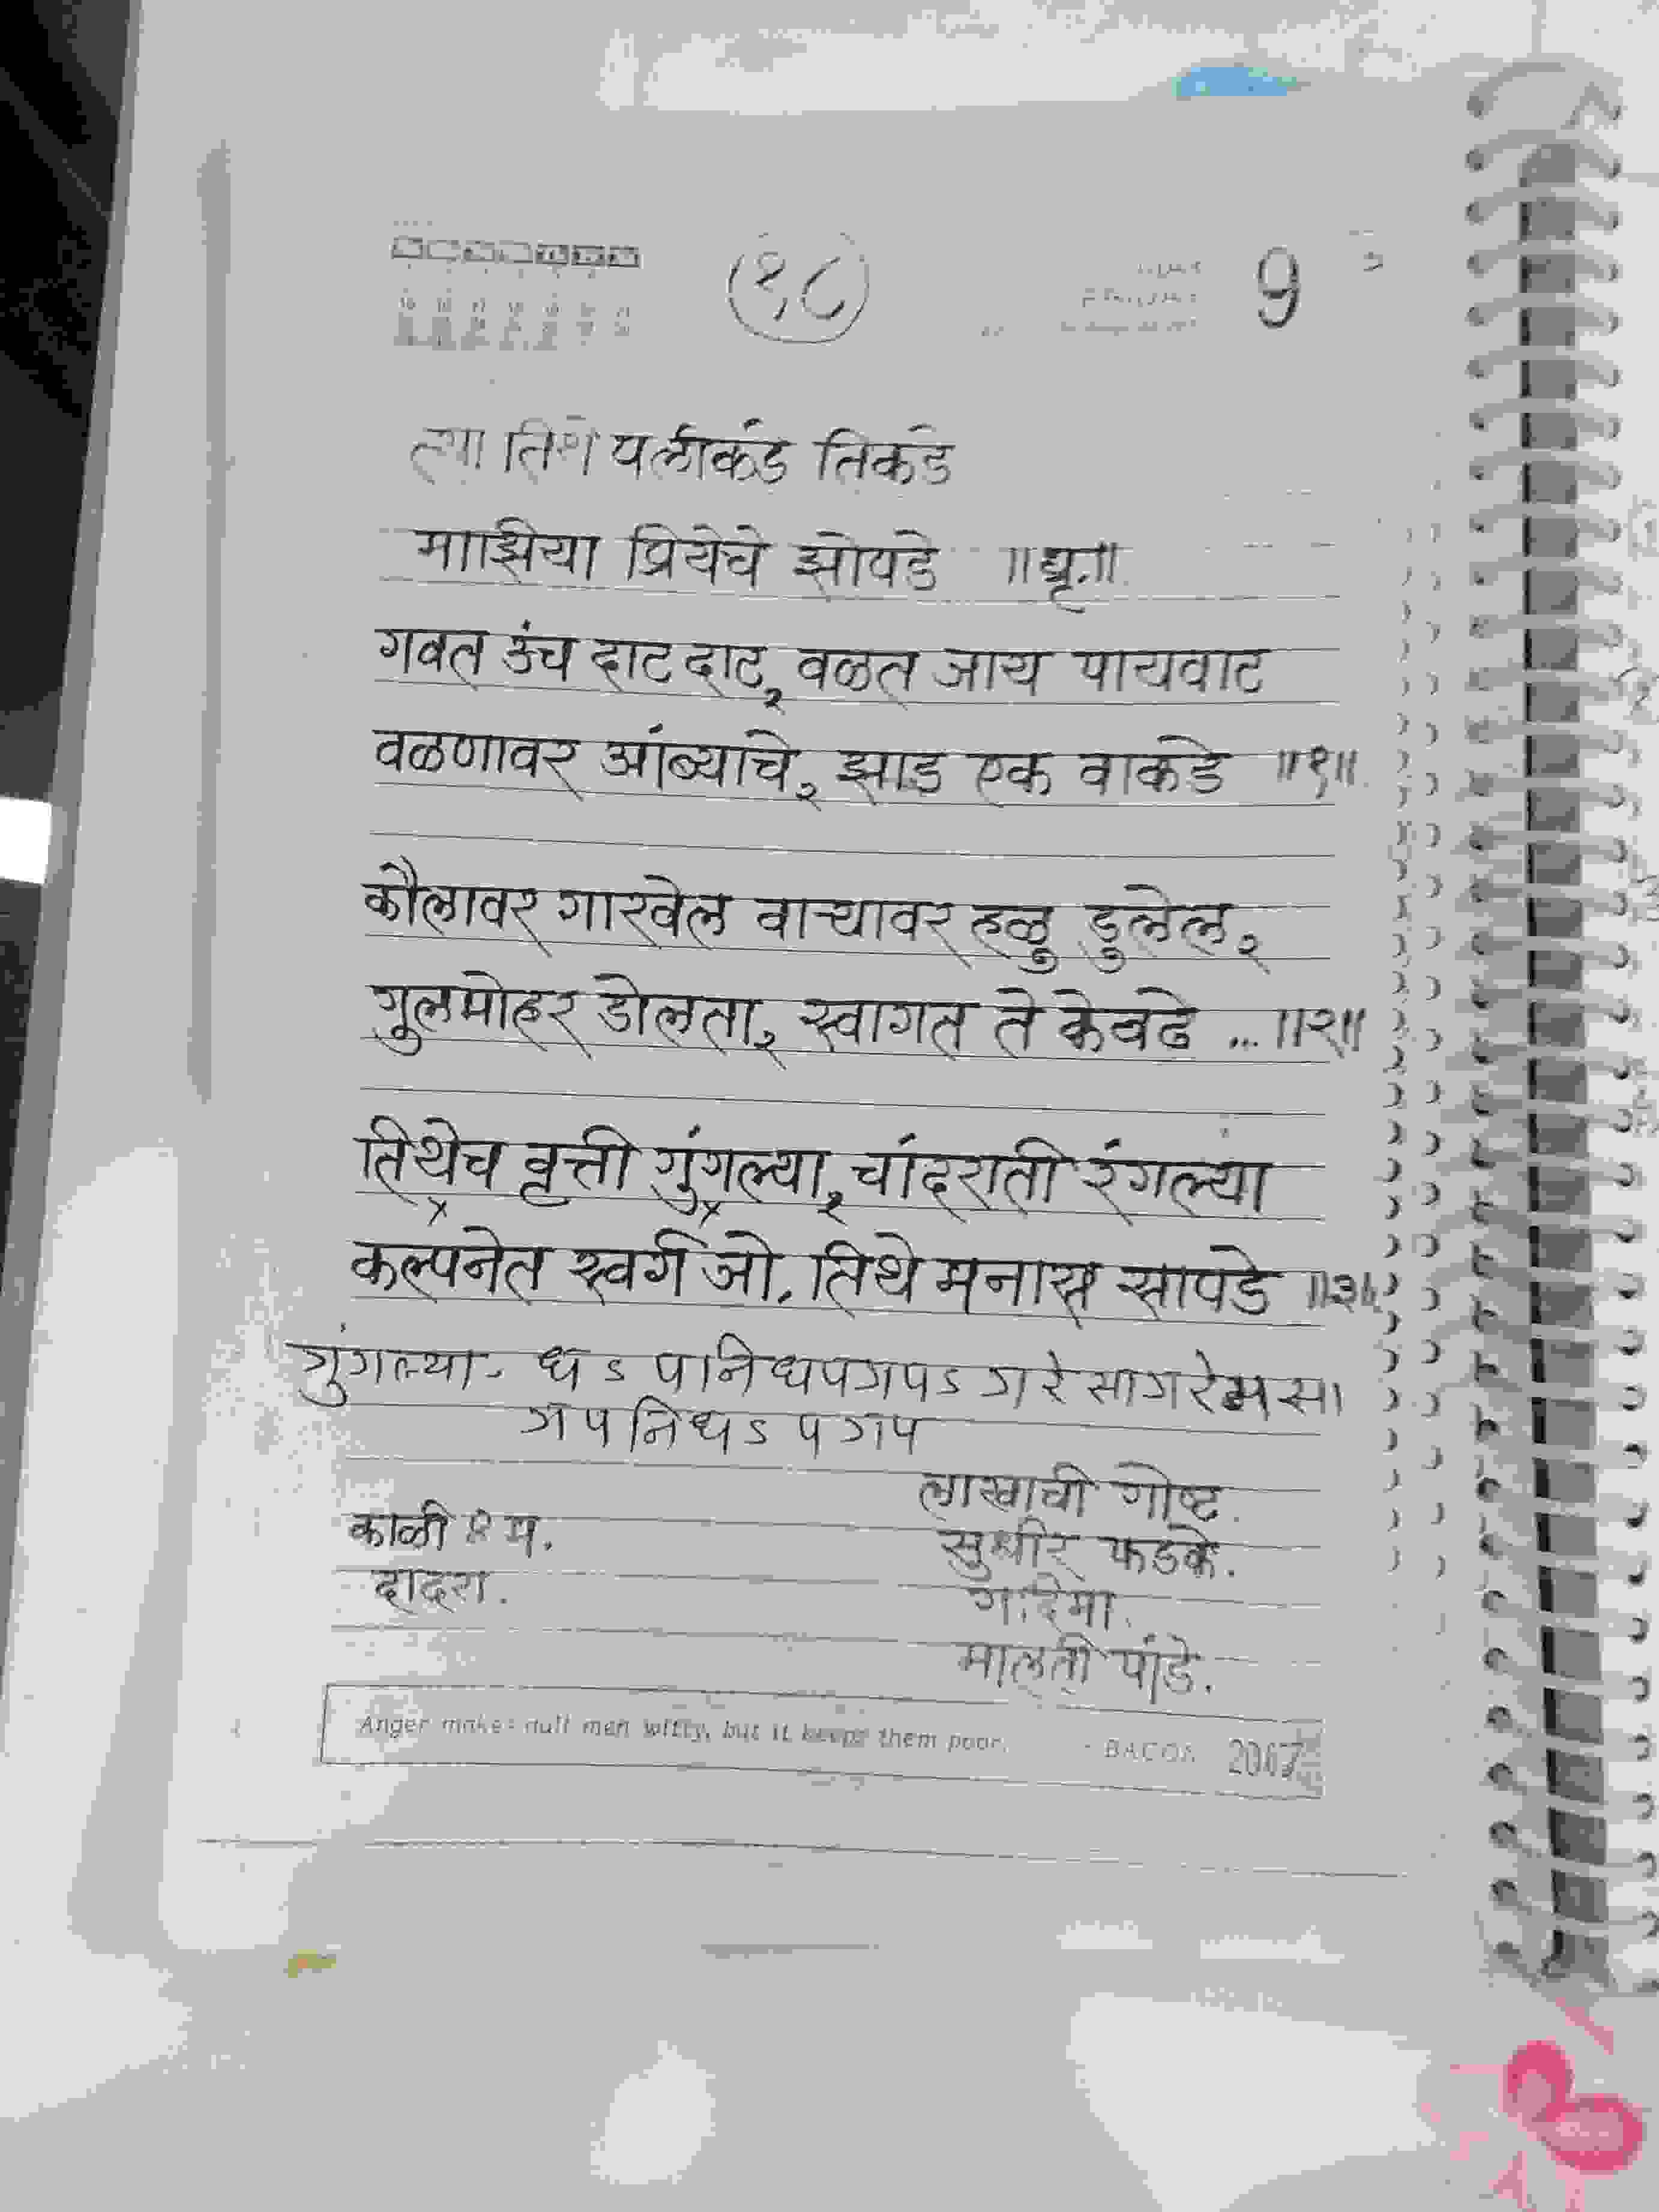 १८
9
त्या तिथे पलीकडे तिकडे
माझिया प्रियेचे झोपडे ॥धृ.॥
गवत उंच दाट दाट, वळत जाय पायवाट
वळणावर आंब्याचे, झाड एक वाकडे ॥१॥
कौलावर गारवेल वाऱ्यावर हळु डुलेल,
गुलमोहर डोलता, स्वागत ते केवढे ... ॥२॥
तिथेच वृत्ती गुंगल्या, चांदराती रंगल्या
x x
कल्पनेत स्वर्ग जो, तिथे मनास सापडे ॥३॥
गुंगल्या - ध ऽ पानिधपगपऽ गरेसागरे सा
गपनिधऽ पगप
लाखाची गोष्ट
काळी
सुधीर फडके.
दादरा.
गदिमा.
मालती पांडे.
Anger makes dull men witty, but it keeps them poor. - BACON 2007